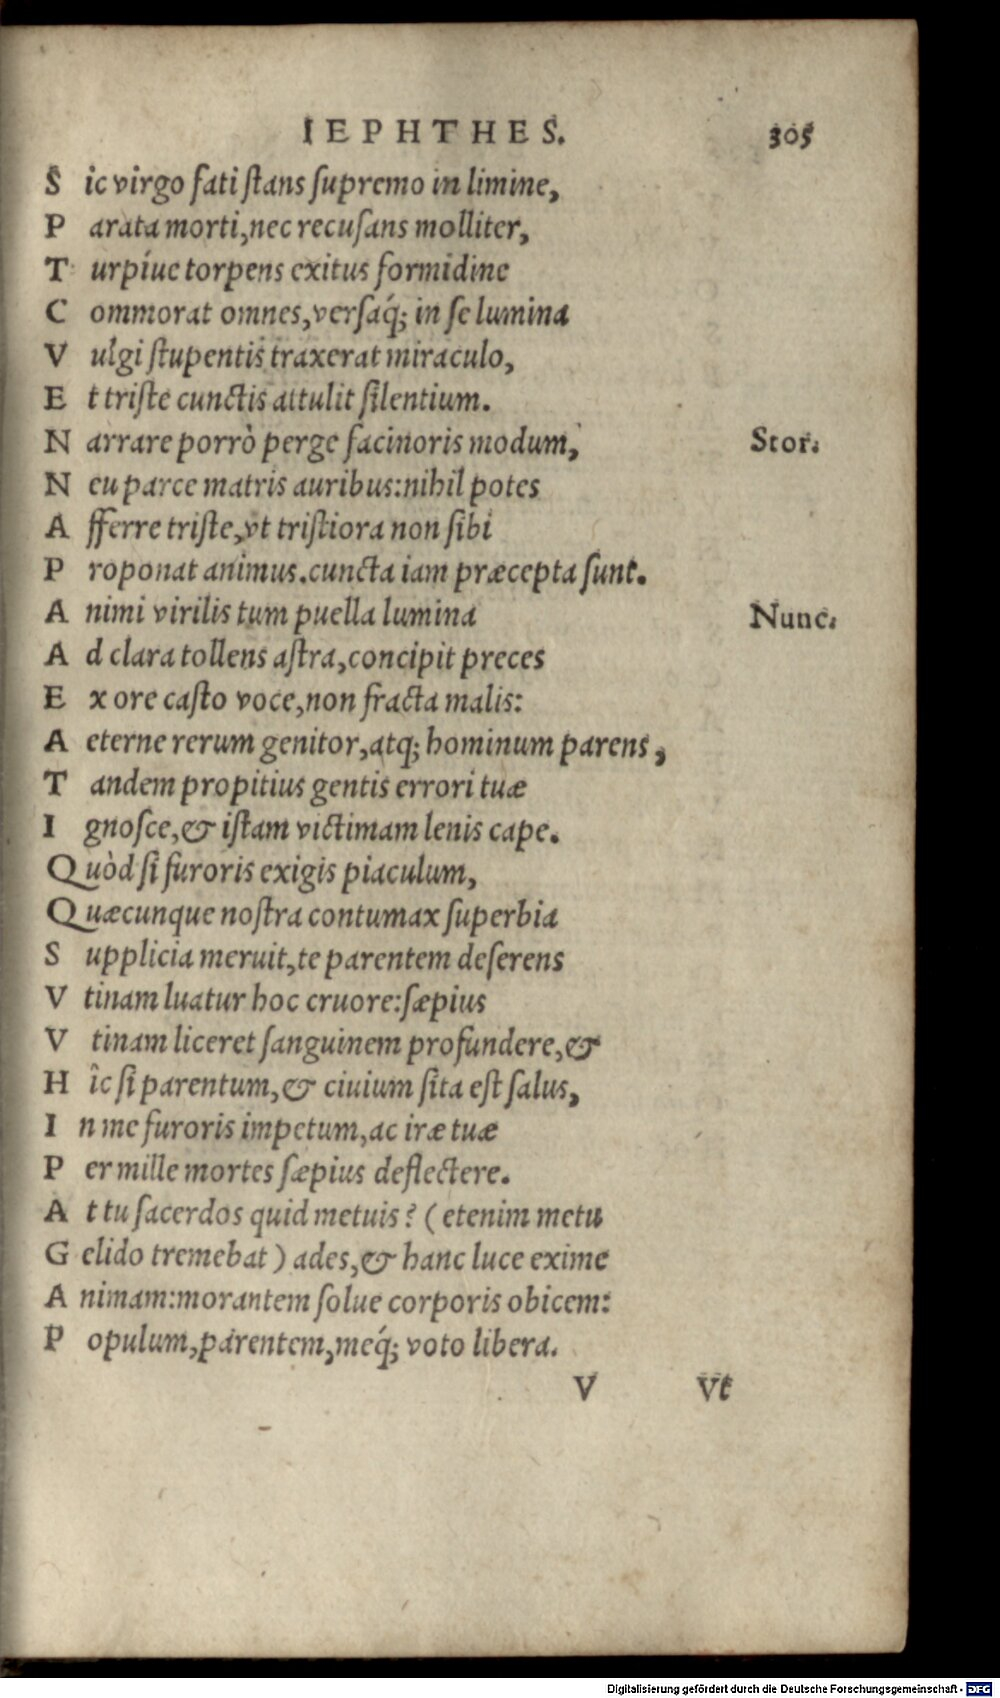 IEPHTHES. 305
Sic virgo fati ſtans ſupremo in limine,
Parata morti, nec recuſans molliter,
Turpíue torpens exitus formidine
Commorat omnes, verſaq́; in ſe lumina
Vulgi ſtupentis traxerat miraculo,
Et triſte cunctis attulit ſilentium.
Narrare porrò perge facinoris modum, Stor.
Neu parce matris auribus: nihil potes
Afferre triſte, vt triſtiora non ſibi
Proponat animus. cuncta iam præcepta ſunt.
Animi virilis tum puella lumina Nunc.
Ad clara tollens aſtra, concipit preces
Ex ore caſto voce, non fracta malis:
Aeterne rerum genitor, atq; hominum parens,
Tandem propitius gentis errori tuæ
Ignoſce, & iſtam victimam lenis cape.
Quòd ſi furoris exigis piaculum,
Quæcunque noſtra contumax ſuperbia
Supplicia meruit, te parentem deſerens
Vtinam luatur hoc cruore: ſæpius
Vtinam liceret ſanguinem profundere, &
Hîc ſi parentum, & ciuium ſita eſt ſalus,
In me furoris impetum, ac iræ tuæ
Per mille mortes ſæpius deflectere.
At tu ſacerdos quid metuis? (etenim metu
Gelido tremebat) ades, & hanc luce exime
Animam: morantem ſolue corporis obicem:
Populum, parentem, meq́; voto libera.
V Vt
Digitalisierung gefördert durch die Deutsche Forschungsgemeinschaft - DFG